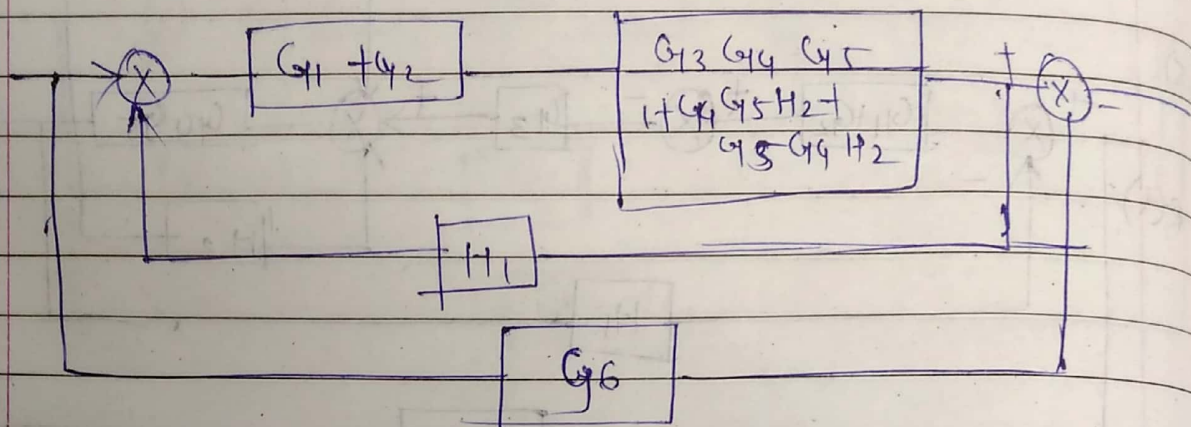 G1 + G2
G3 G4 G5
1 + G4 G5 H2 +
G5 G4 H2
+
X
X
-
H1
G6